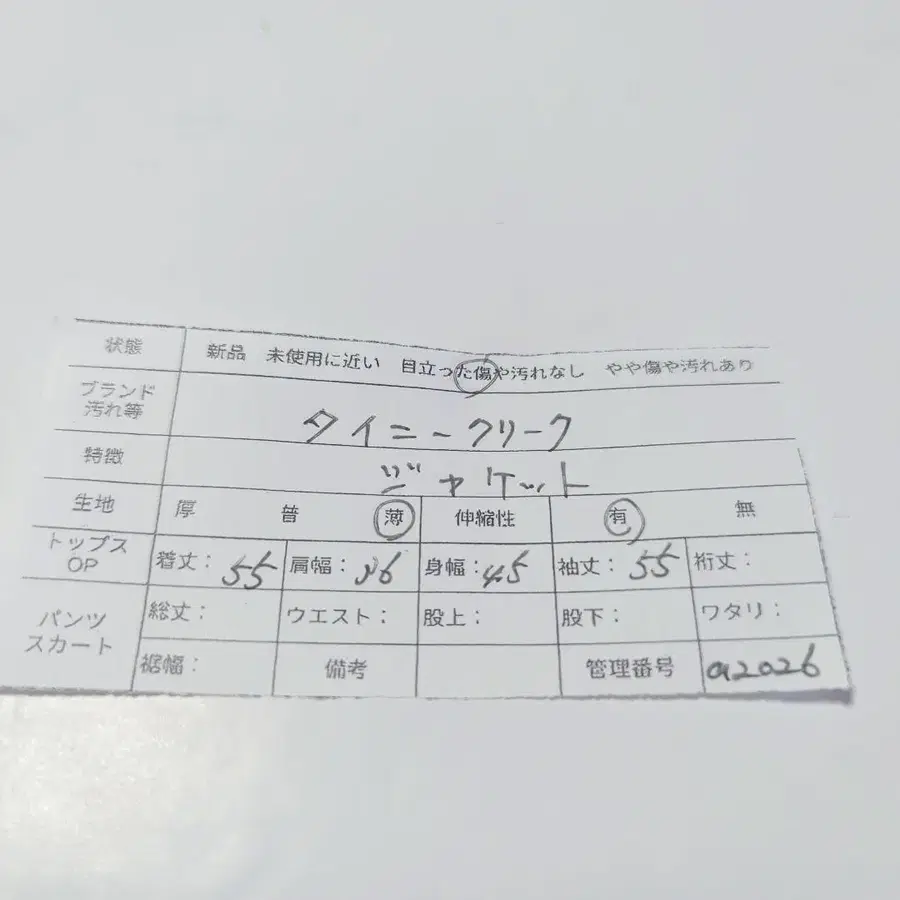 状態 新品 未使用に近い 目立った傷や汚れなし やや傷や汚れあり
ブランド
汚れ等 タイニークリーク
特徴 ジャケット
生地 厚 普 薄 伸縮性 有 無
トップス
OP 着丈: 55 肩幅: 36 身幅: 45 袖丈: 55 裄丈:
パンツ
スカート 総丈: ウエスト: 股上: 股下: ワタリ:
裾幅: 備考 管理番号 a2026